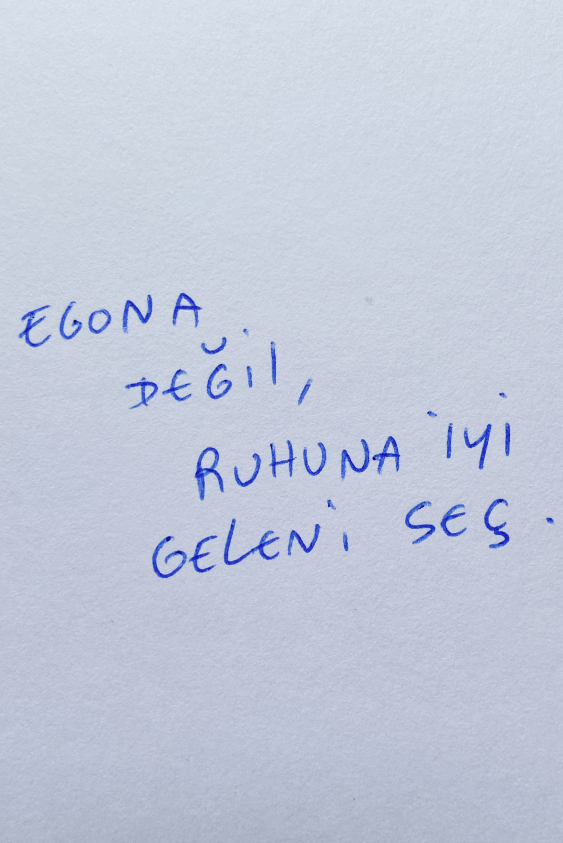 EGONA
DEĞİL,
RUHUNA İYİ
GELENİ SEÇ.